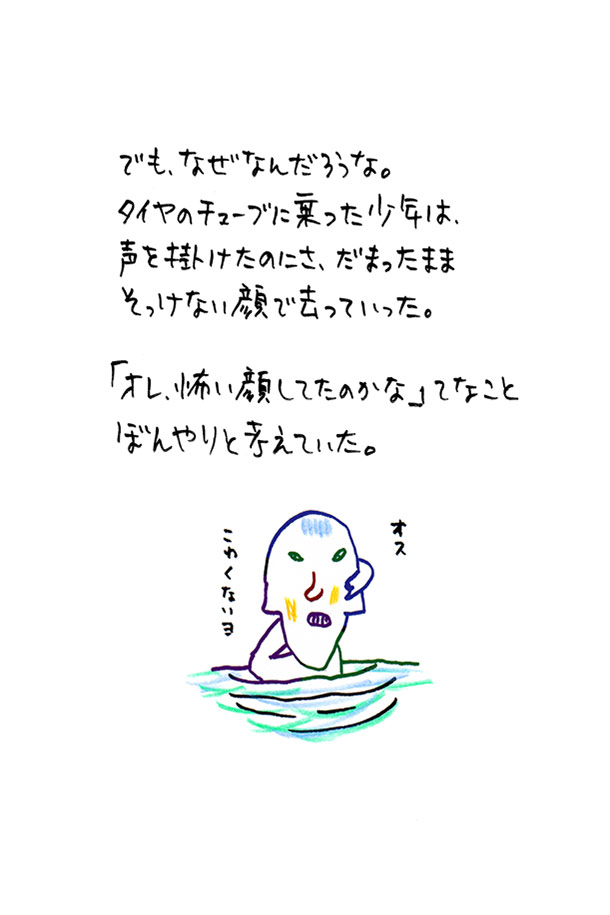 でも、なぜなんだろうな。
タイヤのチューブに乗った少年は、
声を掛けたのにさ、だまったまま
そっけない顔で去っていった。
「オレ、怖い顔してたのかな」てなこと
ぼんやりと考えていた。
オス
こわくないヨ